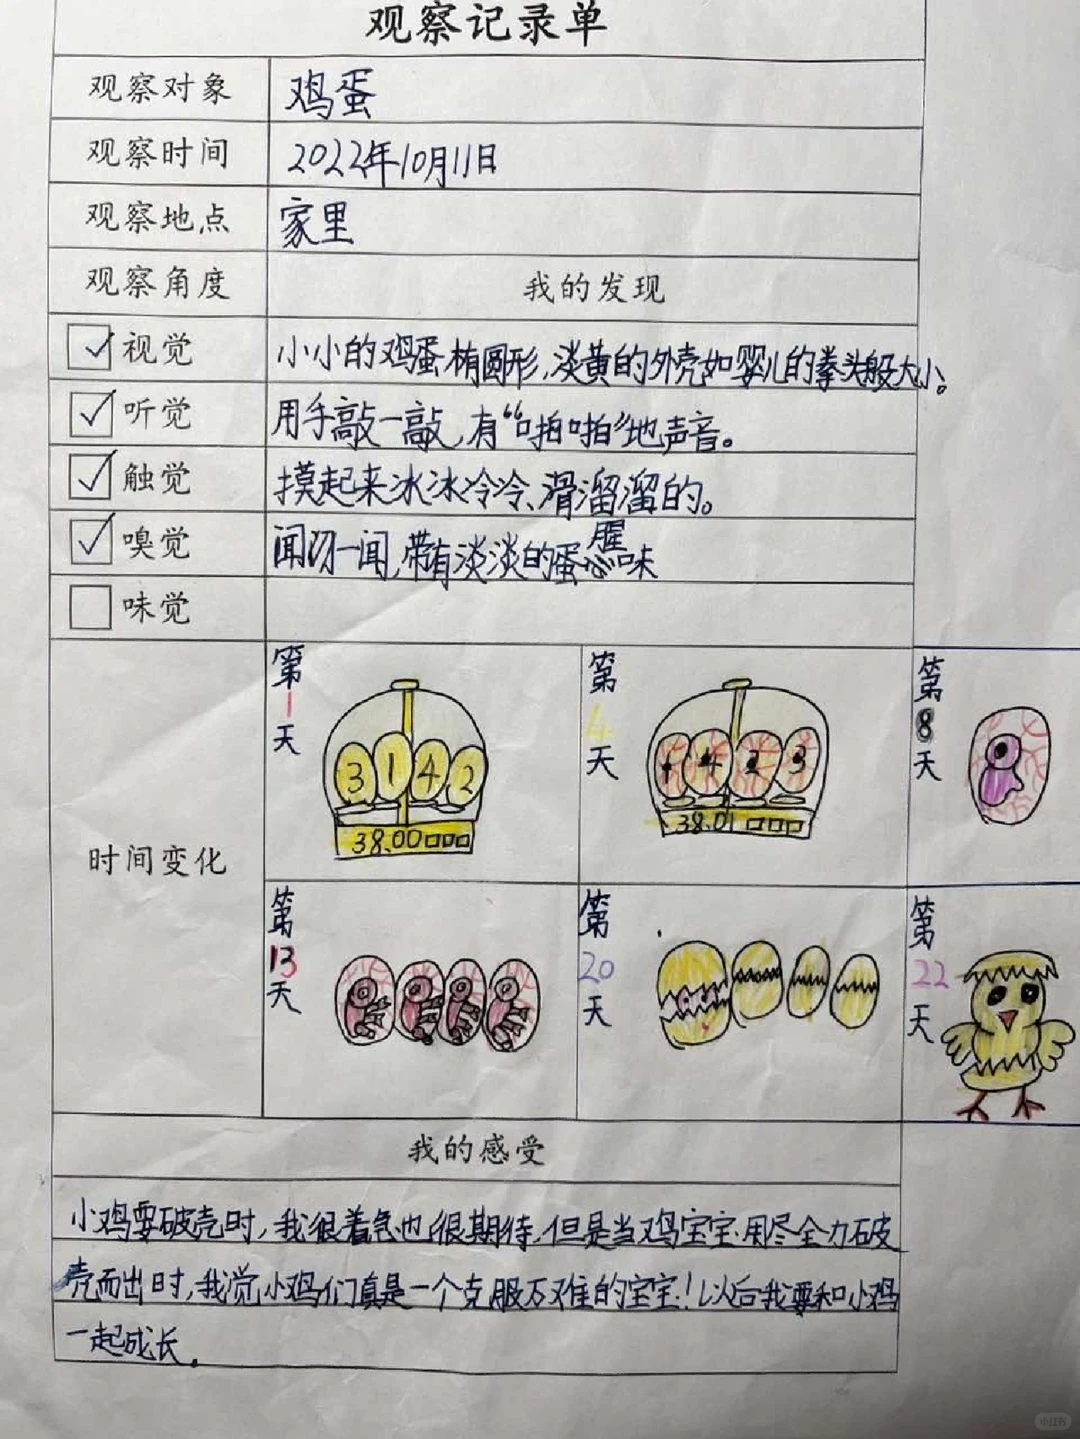 观察记录单
观察对象 鸡蛋
观察时间 2022年10月11日
观察地点 家里
观察角度 我的发现
视觉 小小的鸡蛋,椭圆形,淡黄的外壳如婴儿的拳头般大小。
听觉 用手敲一敲,有“啪啪”地声音。
触觉 摸起来冰冰冷冷、滑溜溜的。
嗅觉 闻一闻,带有淡淡的蛋腥味
味觉
时间变化
第1天
3 1 4 2
38.00
第4天
1 4 2 3
38.01
第8天
第13天
第20天
第22天
我的感受
小鸡要破壳时,我很着急也很期待,但是当鸡宝宝用尽全力破
壳而出时,我觉小鸡们真是一个克服万难的宝宝!以后我要和小鸡
一起成长.
小红书